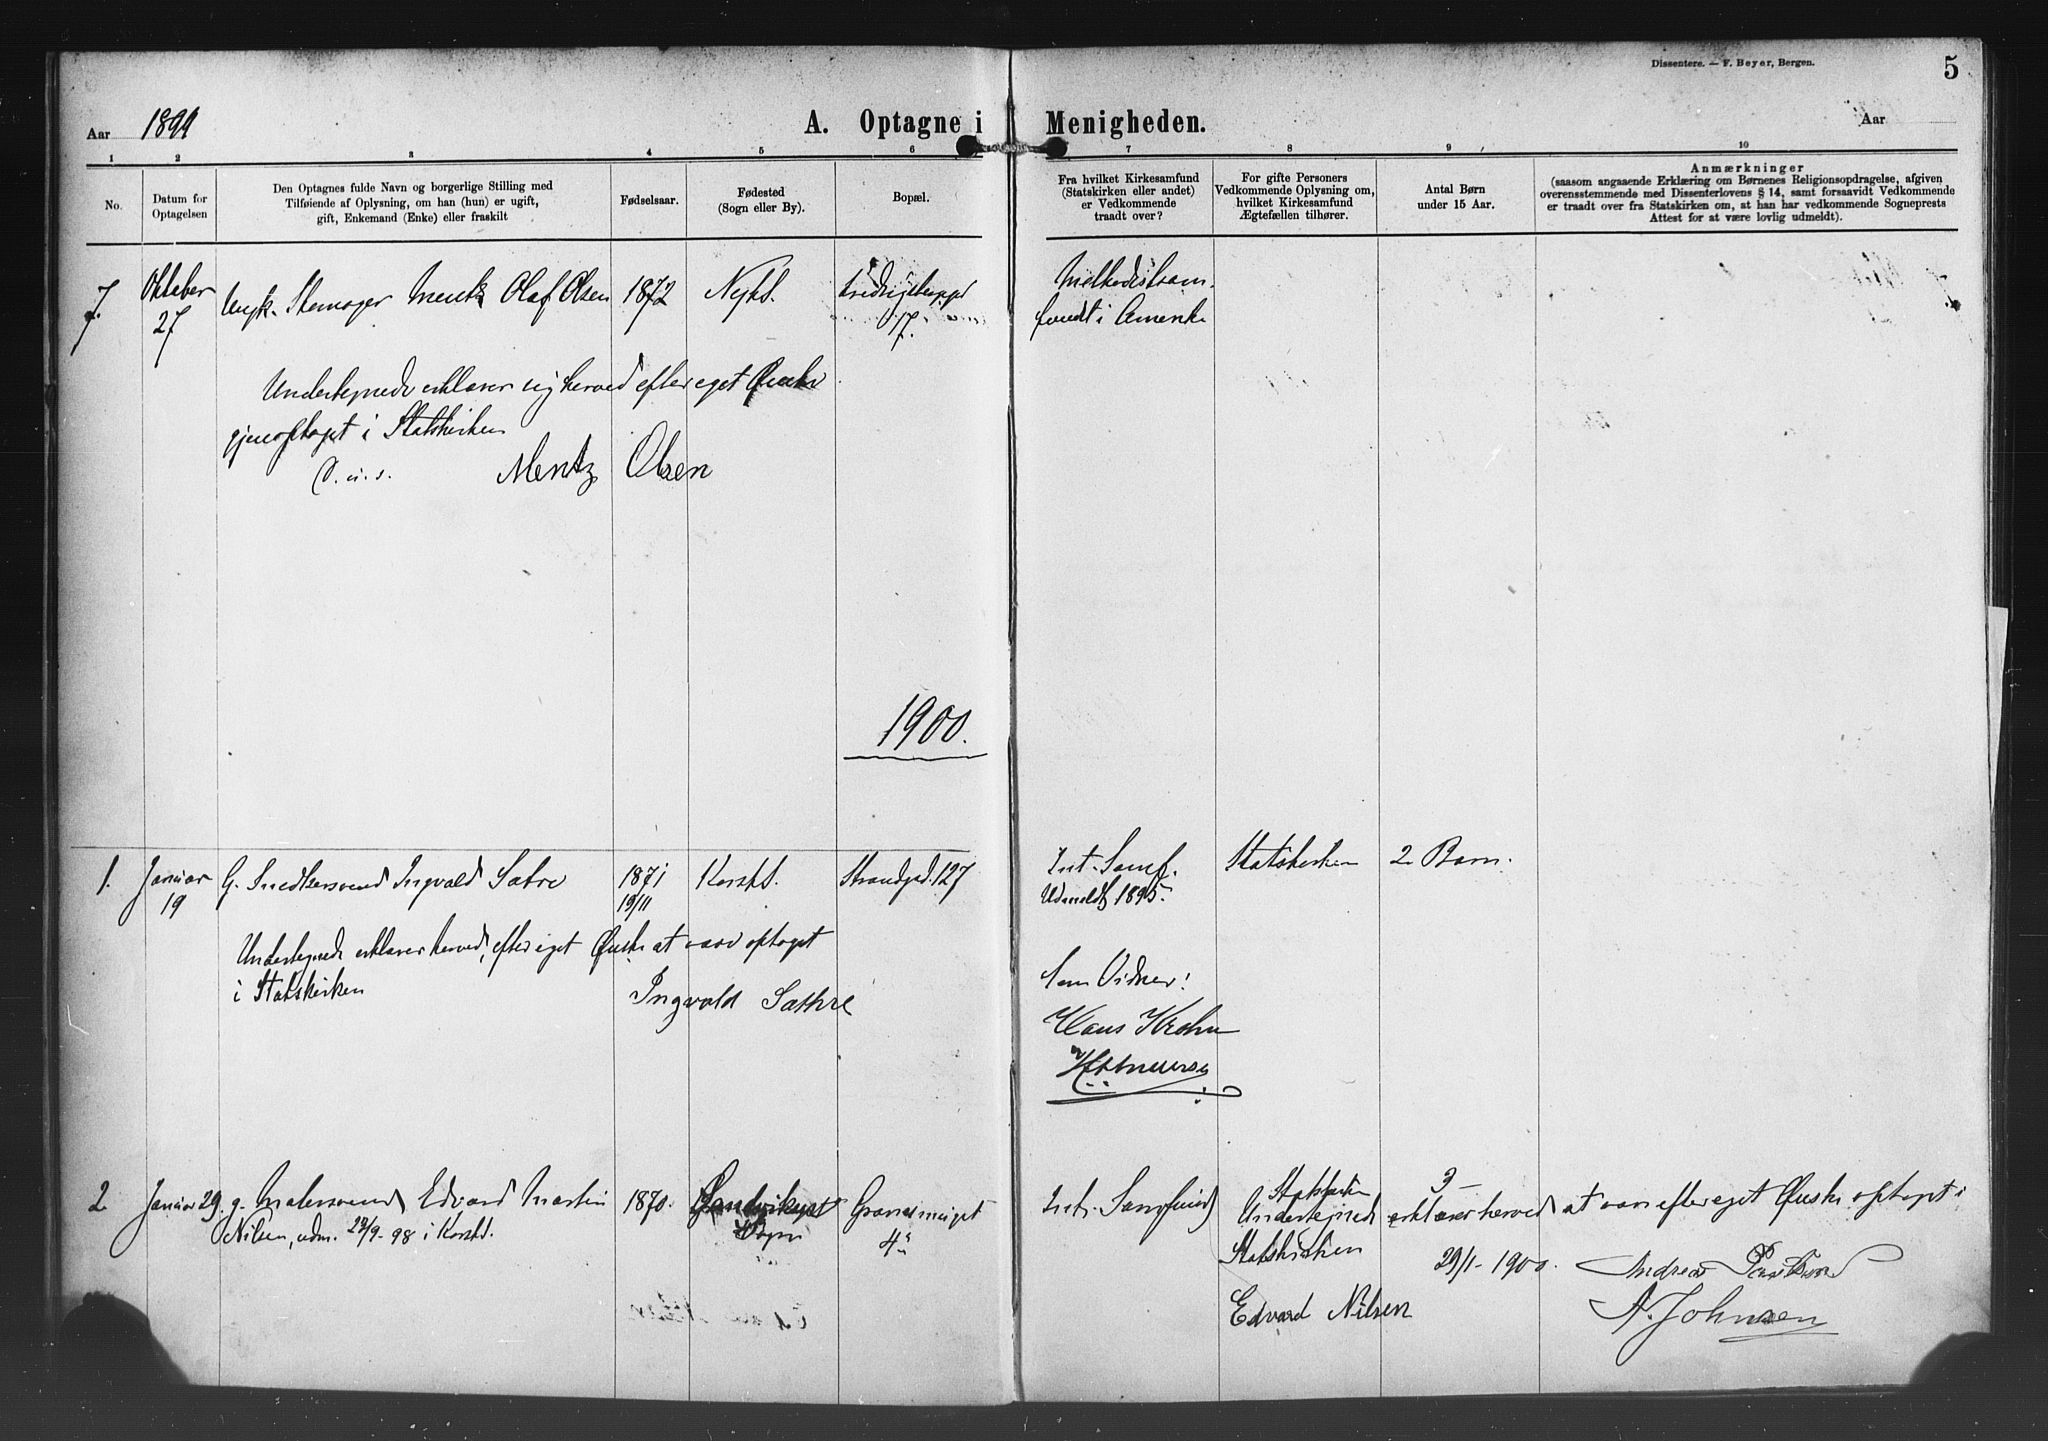 Dissentere. — F. Beyer, Bergen.
5
Aar 1899
A. Optagne i Menigheden.
Aar
1 2 3 4 5 6 7 8 9 10
No.
Datum for
Optagelsen
Den Optagnes fulde Navn og borgerlige Stilling med
Tilføiende af Oplysning, om han (hun) er ugift,
gift, Enkemand (Enke) eller fraskilt
Fødselsaar.
Fødested
(Sogn eller By).
Bopæl.
Fra hvilket Kirkesamfund
(Statskirken eller andet)
er Vedkommende
traadt over?
For gifte Personers
Vedkommende Oplysning om,
hvilket Kirkesamfund
Ægtefællen tilhører.
Antal Børn
under 15 Aar.
Anmærkninger
(saasom angaaende Erklæring om Børnenes Religionsopdragelse, afgiven
overensstemmende med Dissenterlovens § 14, samt forsaavidt Vedkommende
er traadt over fra Statskirken om, at han har vedkommende Sogneprests
Attest for at være lovlig udmeldt).
7. Oktober
27
Ungk. Olaf Olsen 1872 Nyk.
17.
fundt i Amerika
Undertegnede erklærer sig herved efter eget Ønske
gjenoptaget i Statskirken
D. u. s. Mentz Olsen
1900.
1. Januar
19
G. Snedkersvend Ingvald Sætre 1871
19/11
Korsk. Strandgd. 127
Int. Samf.
Udmeldt 1895.
Statskirken 2 Barn.
Undertegnede erklærer herved, efter eget Ønske at være optaget
i Statskirken
Ingvald Sæthre
Som Vidner:
Hans Krohn
2 Januar 29. g. Malersvend Edvard Martin 1870.
Nilsen, udm. 23/9-98 i Korsk.
Sogn
4
Int. Samfund
Statskirken 3
Undertegnede erklærer herved at være efter eget Ønske optaget i
Statskirken 29/1-1900.
Andreas
Edvard Nilsen
A. Johnsen